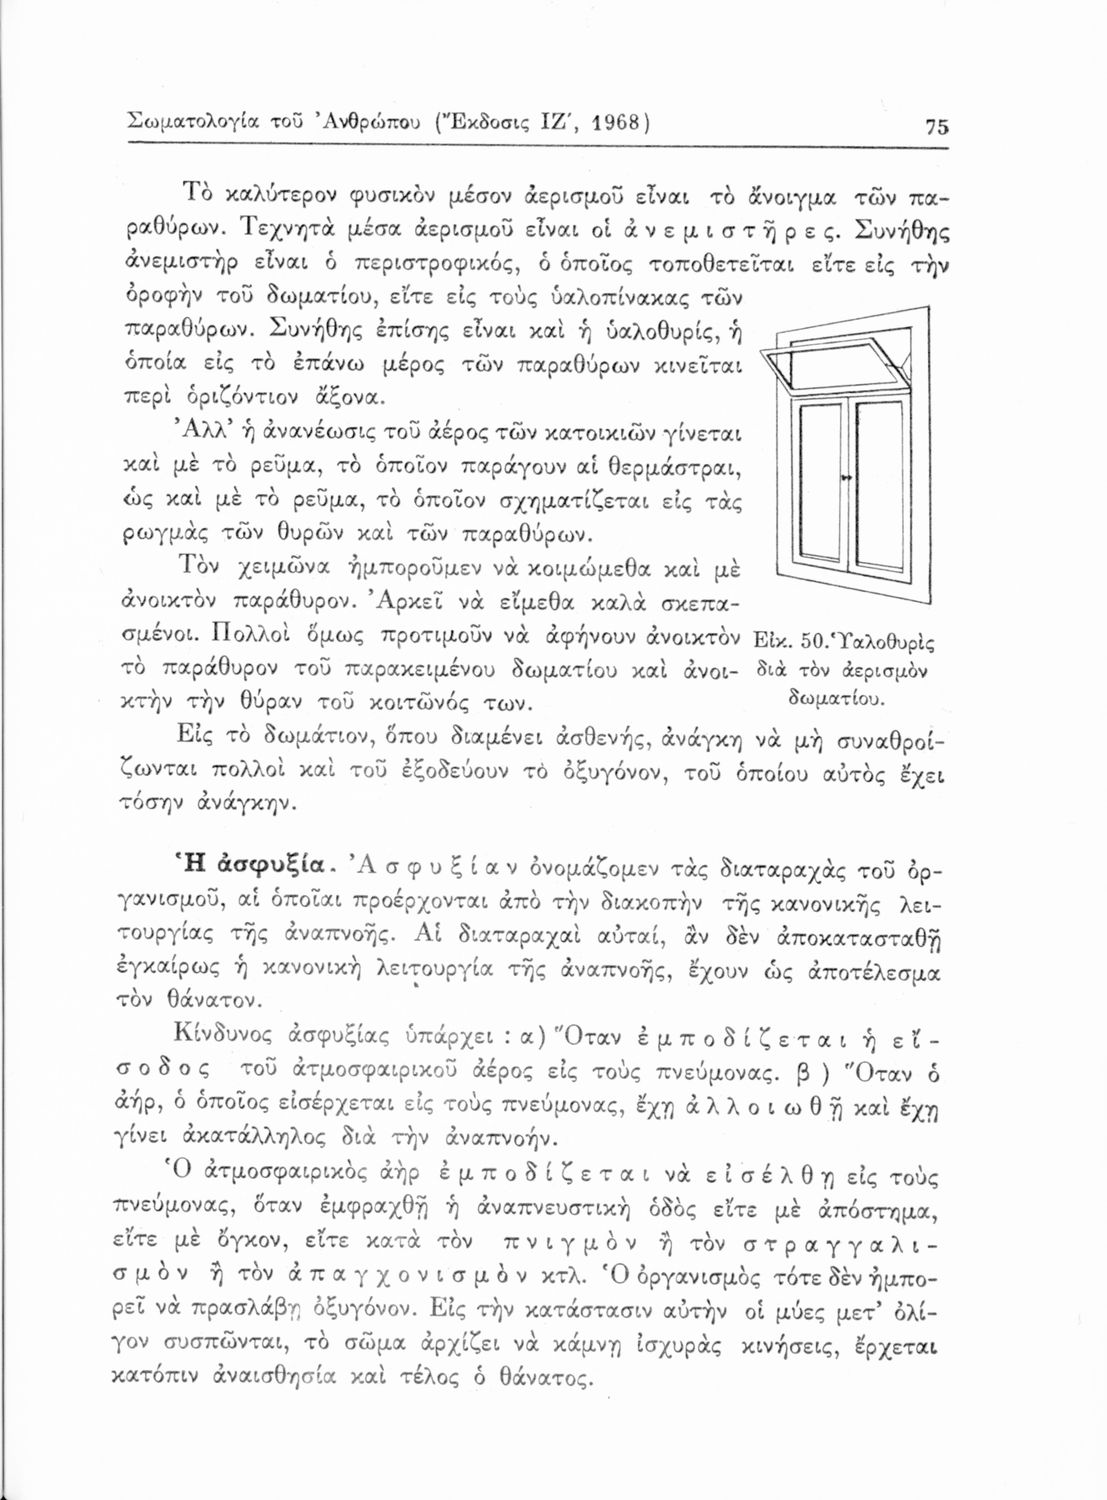 Σωματολογία τοῦ Ἀνθρώπου (Ἔκδοσις ΙΖ΄, 1968)
75
Τὸ καλύτερον φυσικὸν μέσον ἀερισμοῦ εἶναι τὸ ἄνοιγμα τῶν πα-
ραθύρων. Τεχνητὰ μέσα ἀερισμοῦ εἶναι οἱ ἀνεμιστῆρες. Συνήθης
ἀνεμιστὴρ εἶναι ὁ περιστροφικός, ὁ ὁποῖος τοποθετεῖται εἴτε εἰς τὴν
ὀροφὴν τοῦ δωματίου, εἴτε εἰς τοὺς ὑαλοπίνακας τῶν
παραθύρων. Συνήθης ἐπίσης εἶναι καὶ ἡ ὑαλοθυρίς, ἡ
ὁποία εἰς τὸ ἐπάνω μέρος τῶν παραθύρων κινεῖται
περὶ ὁριζόντιον ἄξονα.
Ἀλλ’ ἡ ἀνανέωσις τοῦ ἀέρος τῶν κατοικιῶν γίνεται
καὶ μὲ τὸ ρεῦμα, τὸ ὁποῖον παράγουν αἱ θερμάστραι,
ὡς καὶ μὲ τὸ ρεῦμα, τὸ ὁποῖον σχηματίζεται εἰς τὰς
ρωγμὰς τῶν θυρῶν καὶ τῶν παραθύρων.
Τὸν χειμῶνα ἠμποροῦμεν νὰ κοιμώμεθα καὶ μὲ
ἀνοικτὸν παράθυρον. Ἀρκεῖ νὰ εἴμεθα καλὰ σκεπα-
σμένοι. Πολλοὶ ὅμως προτιμοῦν νὰ ἀφήνουν ἀνοικτὸν
τὸ παράθυρον τοῦ παρακειμένου δωματίου καὶ ἀνοι-
κτὴν τὴν θύραν τοῦ κοιτῶνός των.
Εἰκ. 50. Ὑαλοθυρὶς
διὰ τὸν ἀερισμὸν
δωματίου.
Εἰς τὸ δωμάτιον, ὅπου διαμένει ἀσθενής, ἀνάγκη νὰ μὴ συναθροί-
ζωνται πολλοὶ καὶ τοῦ ἐξοδεύουν τὸ ὀξυγόνον, τοῦ ὁποίου αὐτὸς ἔχει
τόσην ἀνάγκην.
Ἡ ἀσφυξία. Ἀσφυξίαν ὀνομάζομεν τὰς διαταραχὰς τοῦ ὀρ-
γανισμοῦ, αἱ ὁποῖαι προέρχονται ἀπὸ τὴν διακοπὴν τῆς κανονικῆς λει-
τουργίας τῆς ἀναπνοῆς. Αἱ διαταραχαὶ αὐταί, ἂν δὲν ἀποκατασταθῇ
ἐγκαίρως ἡ κανονικὴ λειτουργία τῆς ἀναπνοῆς, ἔχουν ὡς ἀποτέλεσμα
τὸν θάνατον.
Κίνδυνος ἀσφυξίας ὑπάρχει : α) Ὅταν ἐμποδίζεται ἡ εἴ-
σοδος τοῦ ἀτμοσφαιρικοῦ ἀέρος εἰς τοὺς πνεύμονας. β ) Ὅταν ὁ
ἀήρ, ὁ ὁποῖος εἰσέρχεται εἰς τοὺς πνεύμονας, ἔχῃ ἀλλοιωθῇ καὶ ἔχῃ
γίνει ἀκατάλληλος διὰ τὴν ἀναπνοήν.
Ὁ ἀτμοσφαιρικὸς ἀὴρ ἐμποδίζεται νὰ εἰσέλθῃ εἰς τοὺς
πνεύμονας, ὅταν ἐμφραχθῇ ἡ ἀναπνευστικὴ ὁδὸς εἴτε μὲ ἀπόστημα,
εἴτε μὲ ὄγκον, εἴτε κατὰ τὸν πνιγμὸν ἢ τὸν στραγγαλι-
σμὸν ἢ τὸν ἀπαγχονισμὸν κτλ. Ὁ ὀργανισμὸς τότε δὲν ἠμπο-
ρεῖ νὰ πρασλάβῃ ὀξυγόνον. Εἰς τὴν κατάστασιν αὐτὴν οἱ μύες μετ’ ὀλί-
γον συσπῶνται, τὸ σῶμα ἀρχίζει νὰ κάμνῃ ἰσχυρὰς κινήσεις, ἔρχεται
κατόπιν ἀναισθησία καὶ τέλος ὁ θάνατος.